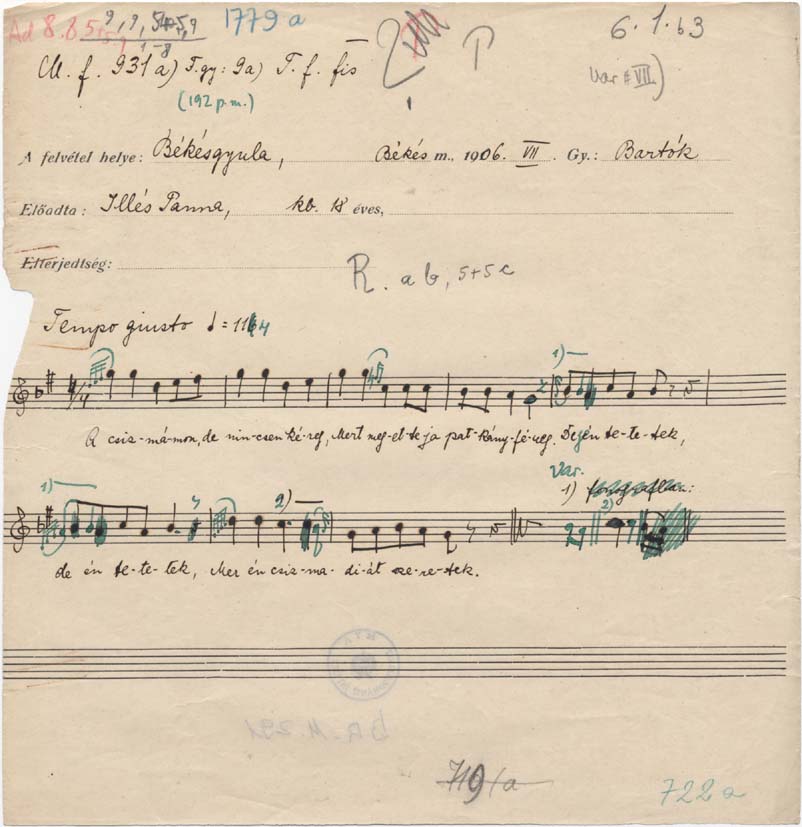 Ad 8.8 5+5,9 9, 9, 5+5,9 1779 a 6.1.63
1-8
M. f. 931 a) T. gy: 9a) T. f. fis P Var # VII.)
(192 p.m.)
A felvétel helye: Békésgyula, Békés m., 1906. VII. Gy.: Bartók
Előadta: Illés Panna, kb. 18 éves,
Elterjedtség:
R. a b, 5+5 c
Tempo giusto = 114
1)
A csiz-má-mon, de nin-csen ké-reg, Mert meg-et-te ja pat-kány-fé-reg. Dején te-te-tek,
Var.
1) 2) 1)
2)
de én te-te-tek, Mer én csiz-ma-di-át sze-re-tek.
BR. M. 291
719/a 722 a